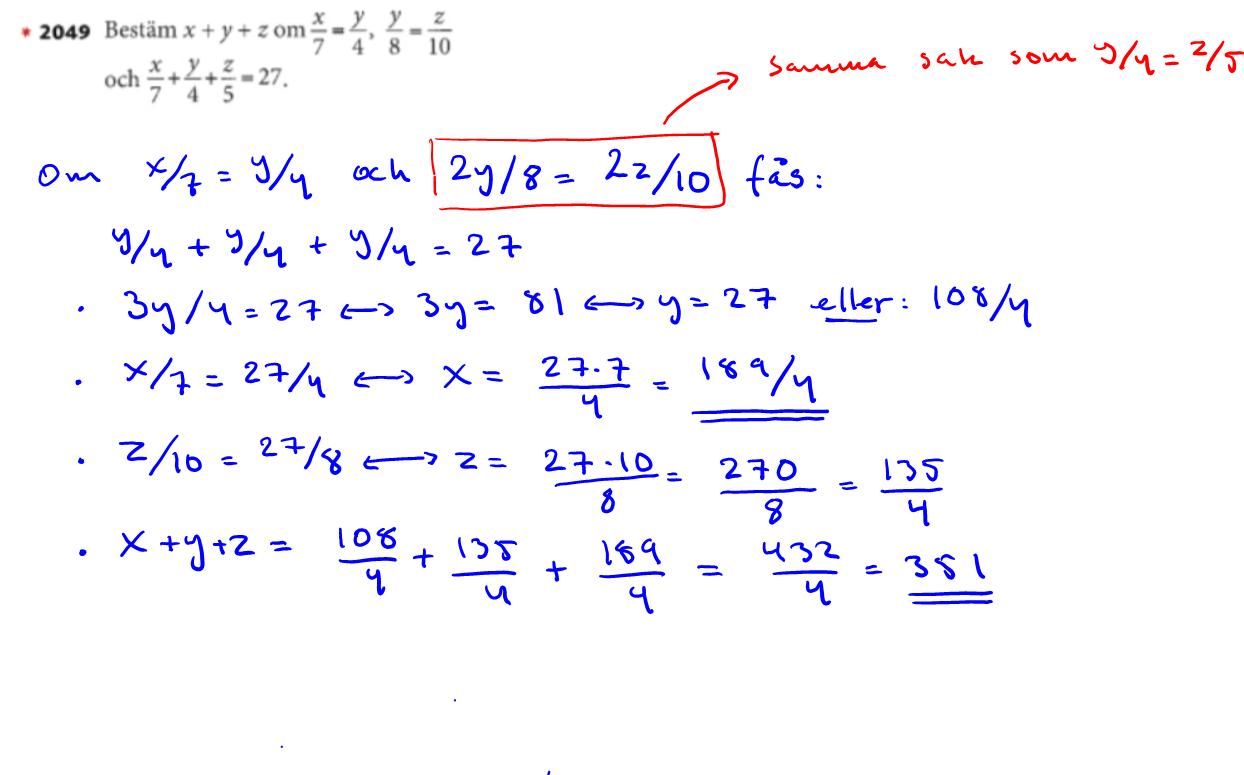 * 2049 Bestäm x + y + z om x/7 = y/4, y/8 = z/10
och x/7 + y/4 + z/5 = 27.
samma sak som y/4 = z/5
Om x/7 = y/4 och 2y/8 = 2z/10 fås:
y/4 + y/4 + y/4 = 27
· 3y/4 = 27 ↔ 3y = 81 ↔ y = 27 eller: 108/4
· x/7 = 27/4 ↔ x = 27·7/4 = 189/4
· z/10 = 27/8 ↔ z = 27·10/8 = 270/8 = 135/4
· x+y+z = 108/4 + 135/4 + 189/4 = 432/4 = 351